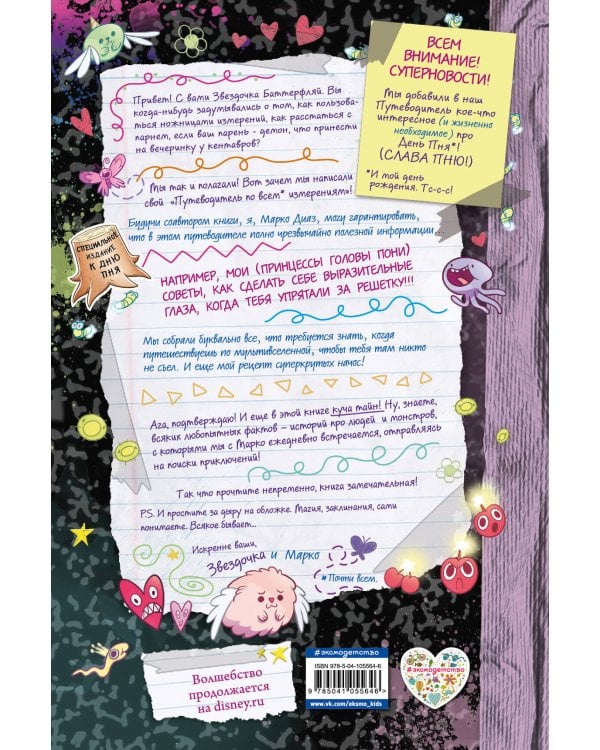 ВСЕМ
ВНИМАНИЕ!
СУПЕРНОВОСТИ!
Мы добавили в наш
Путеводитель кое-что
интересное (и жизненно
необходимое) про
День Пня*!
(СЛАВА ПНЮ!)
*И мой день
рождения. Тс-с-с!
Привет! С вами Звездочка Баттерфляй. Вы
когда-нибудь задумывались о том, как пользова-
ться ножницами измерений, как расстаться с
парнем, если ваш парень – демон, что принести
на вечеринку у кентавров?
Мы так и полагали! Вот зачем мы написали
свой «Путеводитель по всем* измерениям»!
Будучи соавтором книги, я, Марко Диаз, могу гарантировать,
что в этом путеводителе полно чрезвычайно полезной информации...
СПЕЦИАЛЬНОЕ
ИЗДАНИЕ
К ДНЮ
ПНЯ
НАПРИМЕР, МОИ (ПРИНЦЕССЫ ГОЛОВЫ ПОНИ)
СОВЕТЫ, КАК СДЕЛАТЬ СЕБЕ ВЫРАЗИТЕЛЬНЫЕ
ГЛАЗА, КОГДА ТЕБЯ УПРЯТАЛИ ЗА РЕШЕТКУ!!!
Мы собрали буквально все, что требуется знать, когда
путешествуешь по мультивселенной, чтобы тебя там никто
не съел. И еще мой рецепт суперкрутых начос!
Ага, подтверждаю! И еще в этой книге куча тайн! Ну, знаете,
всяких любопытных фактов – историй про людей и монстров,
с которыми мы с Марко ежедневно встречаемся, отправляясь
на поиски приключений!
Так что прочтите непременно, книга замечательная!
P.S. И простите за дыру на обложке. Магия, заклинания, сами
понимаете. Всякое бывает...
Искренне ваши,
Звездочка и Марко
*Почти всем.
Волшебство
продолжается
на disney.ru
#эксмодетство
ISBN 978-5-04-105564-6
9 785041 055646 >
www.vk.com/eksmo_kids
#эксмодетство